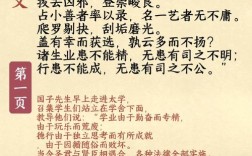 拔去凶邪,登崇畯良。
占小善者率以录,名一艺者无不庸。
爬罗剔抉,刮垢磨光。
盖有幸而获选,孰云多而不扬?
诸生业患不能精,无患有司之不明;
行患不能成,无患有司之不公。
第一页
国子先生早上走进太学,
召集学生们站立在学舍下面,
教导他们说:“学业由于勤奋而专精,
由于玩乐而荒废;
德行由于独立思考而有所成就
,由于因循随俗而毁坏。
当今圣君与贤臣相遇合,各种法律全部实施